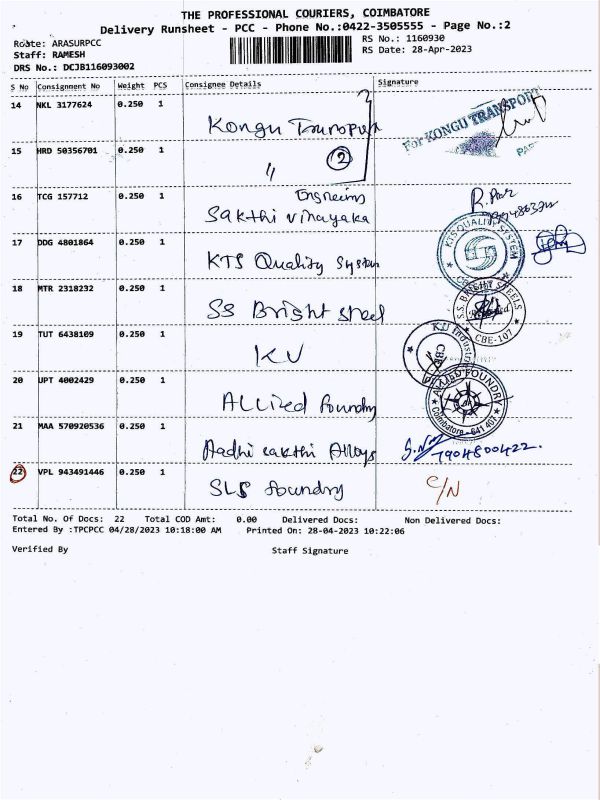 THE PROFESSIONAL COURIERS, COIMBATORE
Delivery Runsheet - PCC - Phone No.:0422-3505555 - Page No.:2
Route: ARASURPCC
Staff: RAMESH
DRS No.: DCJB116093002
RS No.: 1160930
RS Date: 28-Apr-2023
S No Consignment No Weight PCS Consignee Details Signature
14 NKL 3177624 0.250 1 Kongu Transport For KONGU TRANSPORT
15 HRD 50356701 0.250 1 〃 (2)
16 TCG 157712 0.250 1 Sakthi vinayaka Engineers
17 DDG 4801864 0.250 1 KTS Quality System KTS QUALITY SYSTEM
18 MTR 2318232 0.250 1 SS Bright steel S.S. BRIGHT STEELS CBE-107
19 TUT 6438109 0.250 1 KV CBE
20 UPT 4002429 0.250 1 Allied foundry ALLIED FOUNDRY Coimbatore - 641 407
21 MAA 570920536 0.250 1 Aadhi sakthi Alloys 7904800422
22 VPL 943491446 0.250 1 SLS foundry C/N
Total No. Of Docs: 22 Total COD Amt: 0.00 Delivered Docs: Non Delivered Docs:
Entered By :TPCPCC 04/28/2023 10:18:00 AM Printed On: 28-04-2023 10:22:06
Verified By Staff Signature